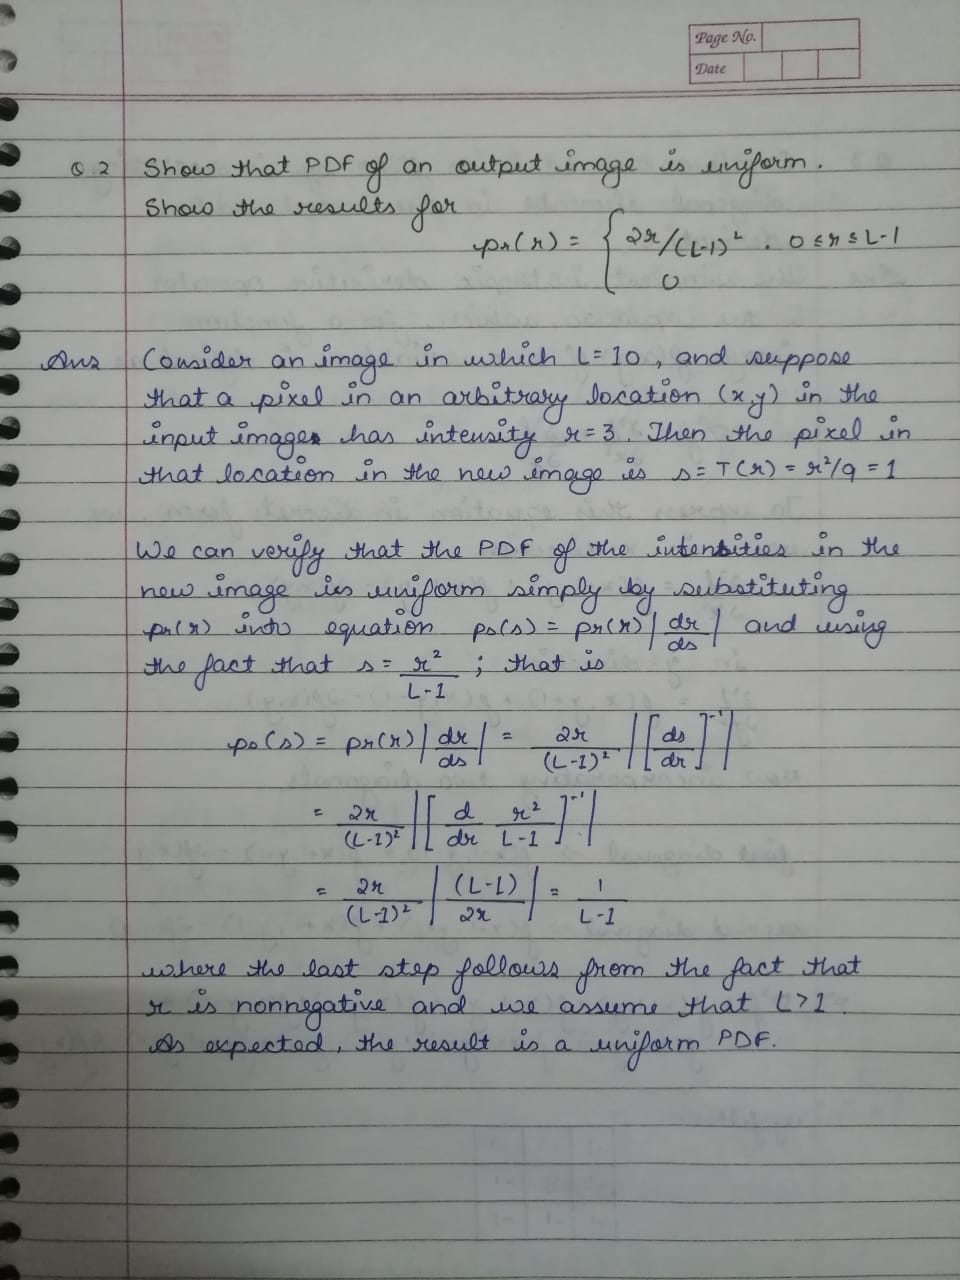 Page No.
Date
Q.2 Show that PDF of an output image is uniform.
Show the results for
pr(r) = { 2r/(L-1)² . 0 ≤ r ≤ L-1
0
Ans Consider an image in which L=10, and suppose
that a pixel in an arbitrary location (x,y) in the
input image has intensity r=3. Then the pixel in
that location in the new image is s=T(r) = r²/9 = 1
We can verify that the PDF of the intensities in the
new image is uniform simply by substituting
pr(r) into equation ps(s) = pr(r) |dr/ds| and using
the fact that s = r²/L-1 ; that is
ps(s) = pr(r) |dr/ds| = 2r/(L-1)² |[ds/dr]⁻¹|
= 2r/(L-1)² |[d/dr r²/L-1]⁻¹|
= 2r/(L-1)² |(L-1)/2r| = 1/L-1
where the last step follows from the fact that
r is nonnegative and we assume that L>1.
As expected, the result is a uniform PDF.